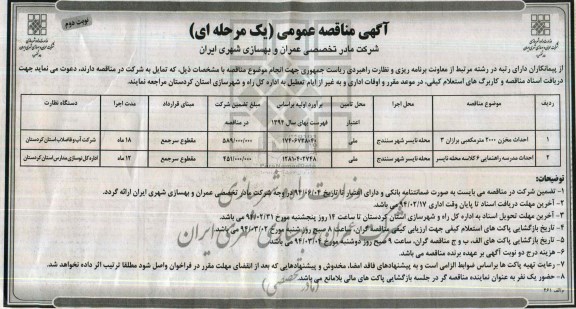 نوبت دوم
آگهی مناقصه عمومی (یک مرحله ای)
شرکت مادر تخصصی عمران و بهسازی شهری ایران
از پیمانکاران دارای رتبه در رشته مرتبط از معاونت برنامه ریزی و نظارت راهبردی ریاست جمهوری جهت انجام موضوع مناقصه با مشخصات ذیل، که تمایل به شرکت در مناقصه دارند، دعوت می نماید جهت
دریافت اسناد مناقصه و کاربرگ های استعلام کیفی، در موعد مقرر و اوقات اداری و به غیر از ایام تعطیل به اداره کل راه و شهرسازی استان کردستان مراجعه نمایند.
ردیف موضوع مناقصه محل اجرا محل تامین اعتبار برآورد اولیه براساس فهرست بهای سال ۱۳۹۴ مبلغ تضمین شرکت در مناقصه مبنای قرارداد مدت اجرا دستگاه نظارت
۱ احداث مخزن ۲۰۰۰ مترمکعبی برازان ۳ محله نایسر شهر سنندج ملی ۱۷۴۰۶۷۳۸۰۴۰ ۵۸۹/۰۰۰/۰۰۰ مقطوع سرجمع ۱۸ ماه شرکت آب و فاضلاب استان کردستان
۲ احداث مدرسه راهنمایی ۶ کلاسه محله نایسر محله نایسر شهر سنندج ملی ۱۲۸۱۰۴۰۲۷۴۸ ۴۵۱/۰۰۰/۰۰۰ مقطوع سرجمع ۱۲ ماه اداره کل نوسازی مدارس استان کردستان
توضیحات:
۱- تضمین شرکت در مناقصه می بایست به صورت ضمانتنامه بانکی و دارای اعتبار تا تاریخ ۹۴/۰۶/۰۴ در وجه شرکت مادر تخصصی عمران و بهسازی شهری ایران ارائه گردد.
۲- آخرین مهلت دریافت اسناد تا پایان وقت اداری ۹۴/۰۲/۱۷ می باشد.
۳- آخرین مهلت تحویل اسناد به اداره کل راه و شهرسازی استان کردستان تا ساعت ۱۴ روز پنجشنبه مورخ ۹۴/۰۲/۳۱ می باشد.
۴- تاریخ بازگشایی پاکت های استعلام کیفی جهت ارزیابی کیفی مناقصه گران، ساعت ۸ صبح روز شنبه مورخ ۹۴/۰۳/۰۲ می باشد.
۵- تاریخ بازگشایی پاکت های الف، ب و ج مناقصه گران، ساعت ۹ صبح روز دوشنبه مورخ ۹۴/۰۳/۰۴ می باشد.
۶- هزینه درج دو نوبت آگهی بر عهده برنده مناقصه می باشد.
۷- رعایت تهیه پاکت ها براساس ضوابط الزامی است و به پیشنهادهای فاقد امضا، مخدوش و پیشنهادهایی که بعد از انقضای مهلت مقرر در فراخوان واصل شود مطلقا ترتیب اثر داده نخواهد شد.
۸- حضور یک نفر به عنوان نماینده مناقصه گر در جلسه بازگشایی پاکت های مالی بلامانع می باشد.